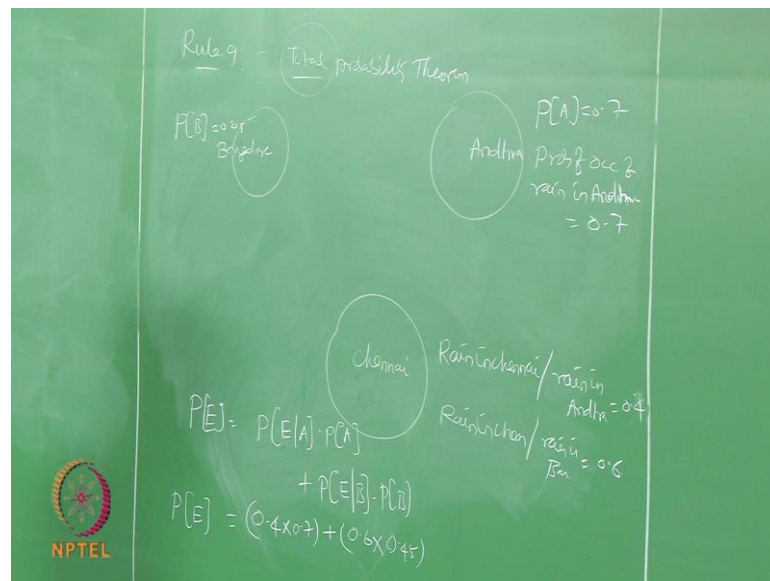 Rule 9 - Total probability Theorem
P[B]=0.45
Bangalore
P[A]=0.7
Andhra
Prob of occ of
rain in Andhra
= 0.7
Chennai
Rain in chennai / rain in
Andhra = 0.4
Rain in chen / rain in
Ban = 0.6
P[E] = P[E|A]·P[A]
+ P[E|B]·P[B]
P[E] = (0.4×0.7)+(0.6×0.45)
NPTEL